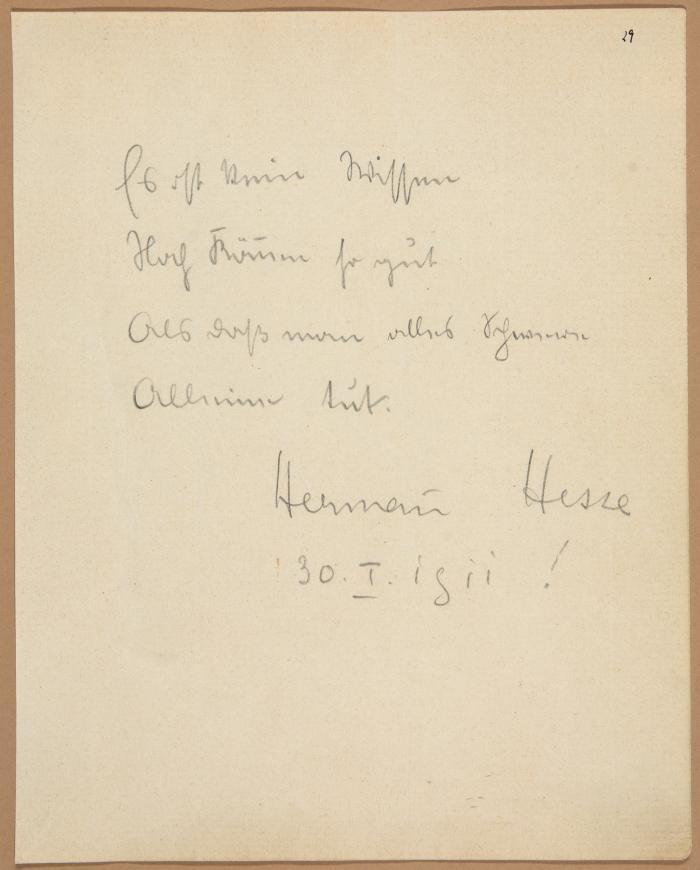 29
Es ist kein Wissen
Noch Können so gut
Als daß man alles Schwere
Alleine tut.
Hermañ Hesse
30. I. 1911 !